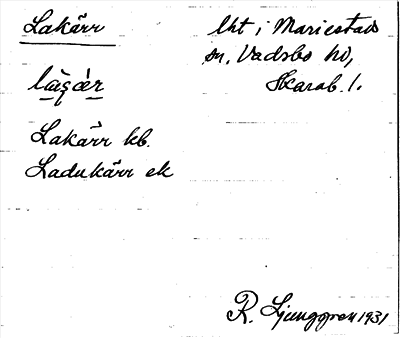 Lakärr
lht i Mariestads
sn, Vadsbo hd,
Skarab. l.
Lakärr kb.
Ladukärr ek
R. Ljunggren 1931